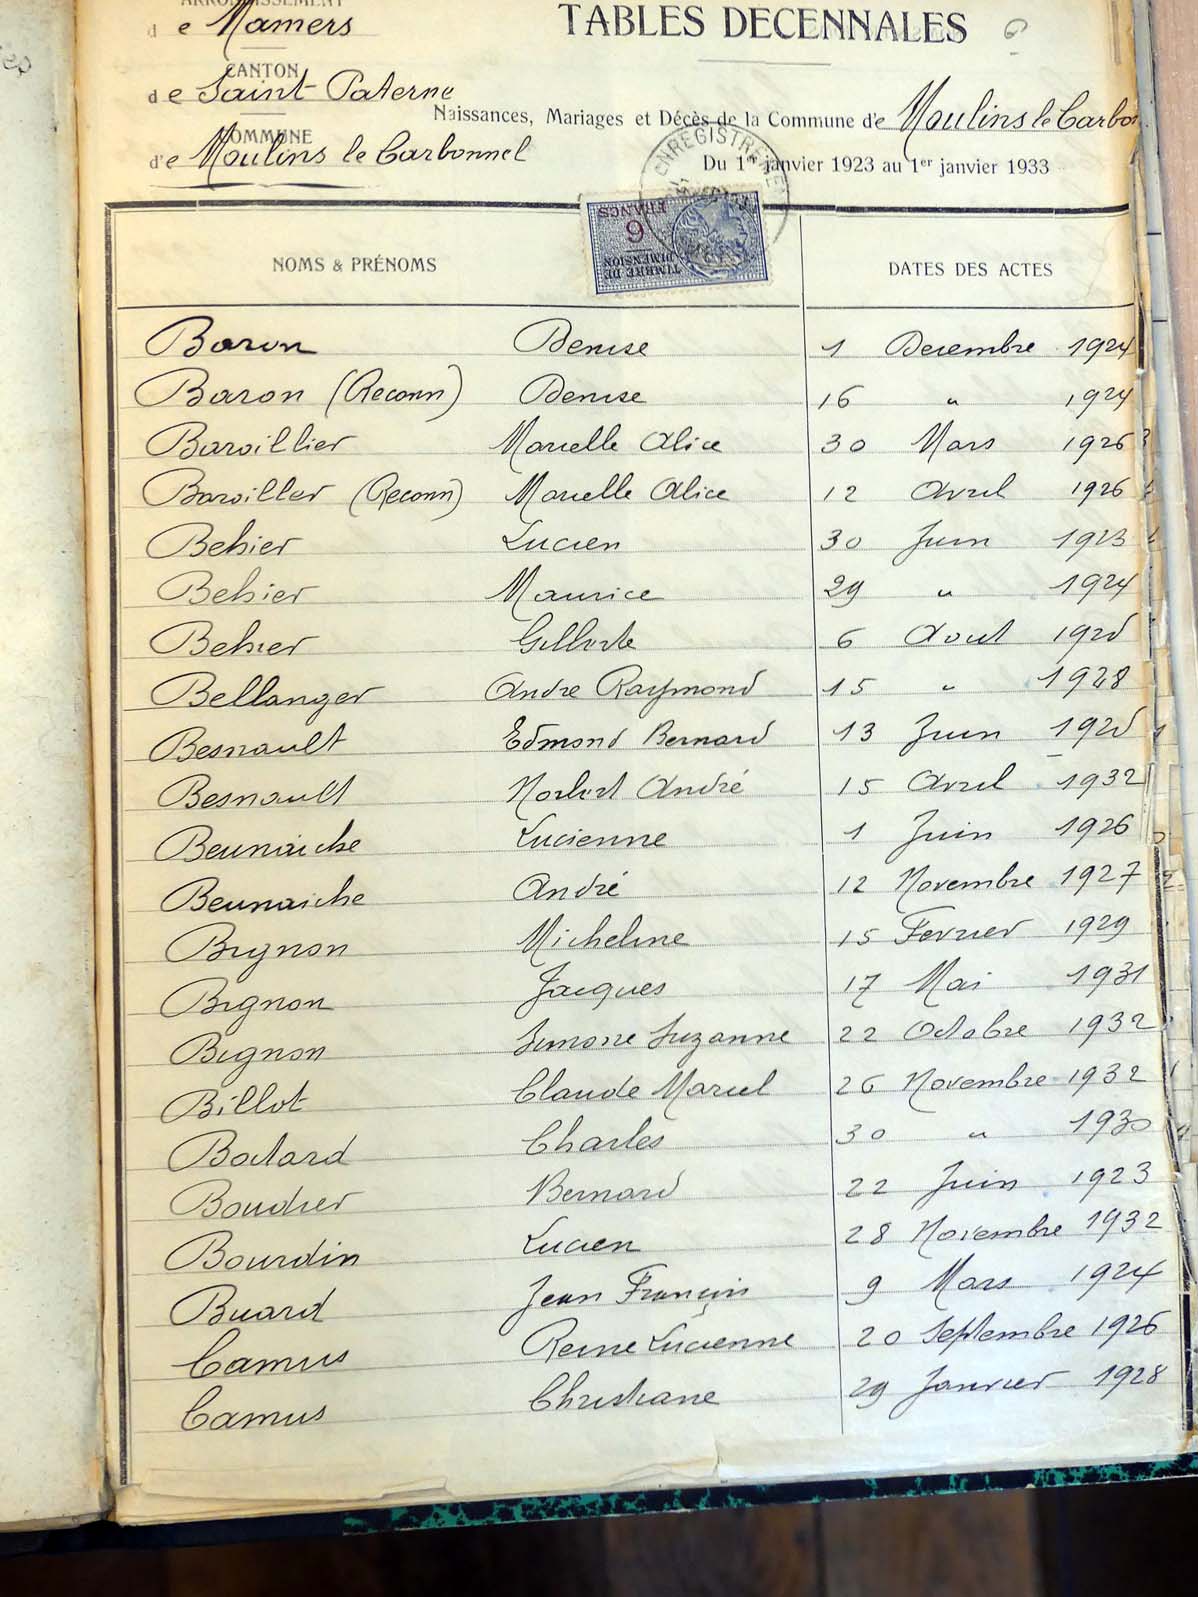 ARRONDISSEMENT
de Mamers
TABLES DECENNALES
CANTON
de Saint Paterne
Naissances, Mariages et Décès de la Commune de Moulins le Carbon
COMMUNE
de Moulins le Carbonnel
Du 1er janvier 1923 au 1er janvier 1933
ENREGISTREME
TIMBRE DE DIMENSION
6 FRANCS
NOMS & PRÉNOMS DATES DES ACTES
Baron Denise 1 Decembre 1924
Baron (Reconn) Denise 16 " 1924
Baroillier Marcelle Alice 30 Mars 1926
Baroiller (Reconn) Marcelle Alice 12 Avril 1926
Behier Lucien 30 Juin 1923
Behier Maurice 29 " 1924
Behier Gilberte 6 Aout 1925
Bellanger Andre Raymond 15 " 1928
Besnault Edmond Bernard 13 Juin 1925
Besnault Norbert André 15 Avril 1932
Beunaiche Lucienne 1 Juin 1926
Beunaiche André 12 Novembre 1927
Bignon Micheline 15 Fevrier 1929
Bignon Jacques 17 Mai 1931
Bignon Simone Suzanne 22 Octobre 1932
Billot Claude Marcel 26 Novembre 1932
Botard Charles 30 " 1930
Boudier Bernard 22 Juin 1923
Bourdin Lucien 28 Novembre 1932
Buard Jean François 9 Mars 1924
Camus Reine Lucienne 20 Septembre 1926
Camus Christiane 29 Janvier 1928